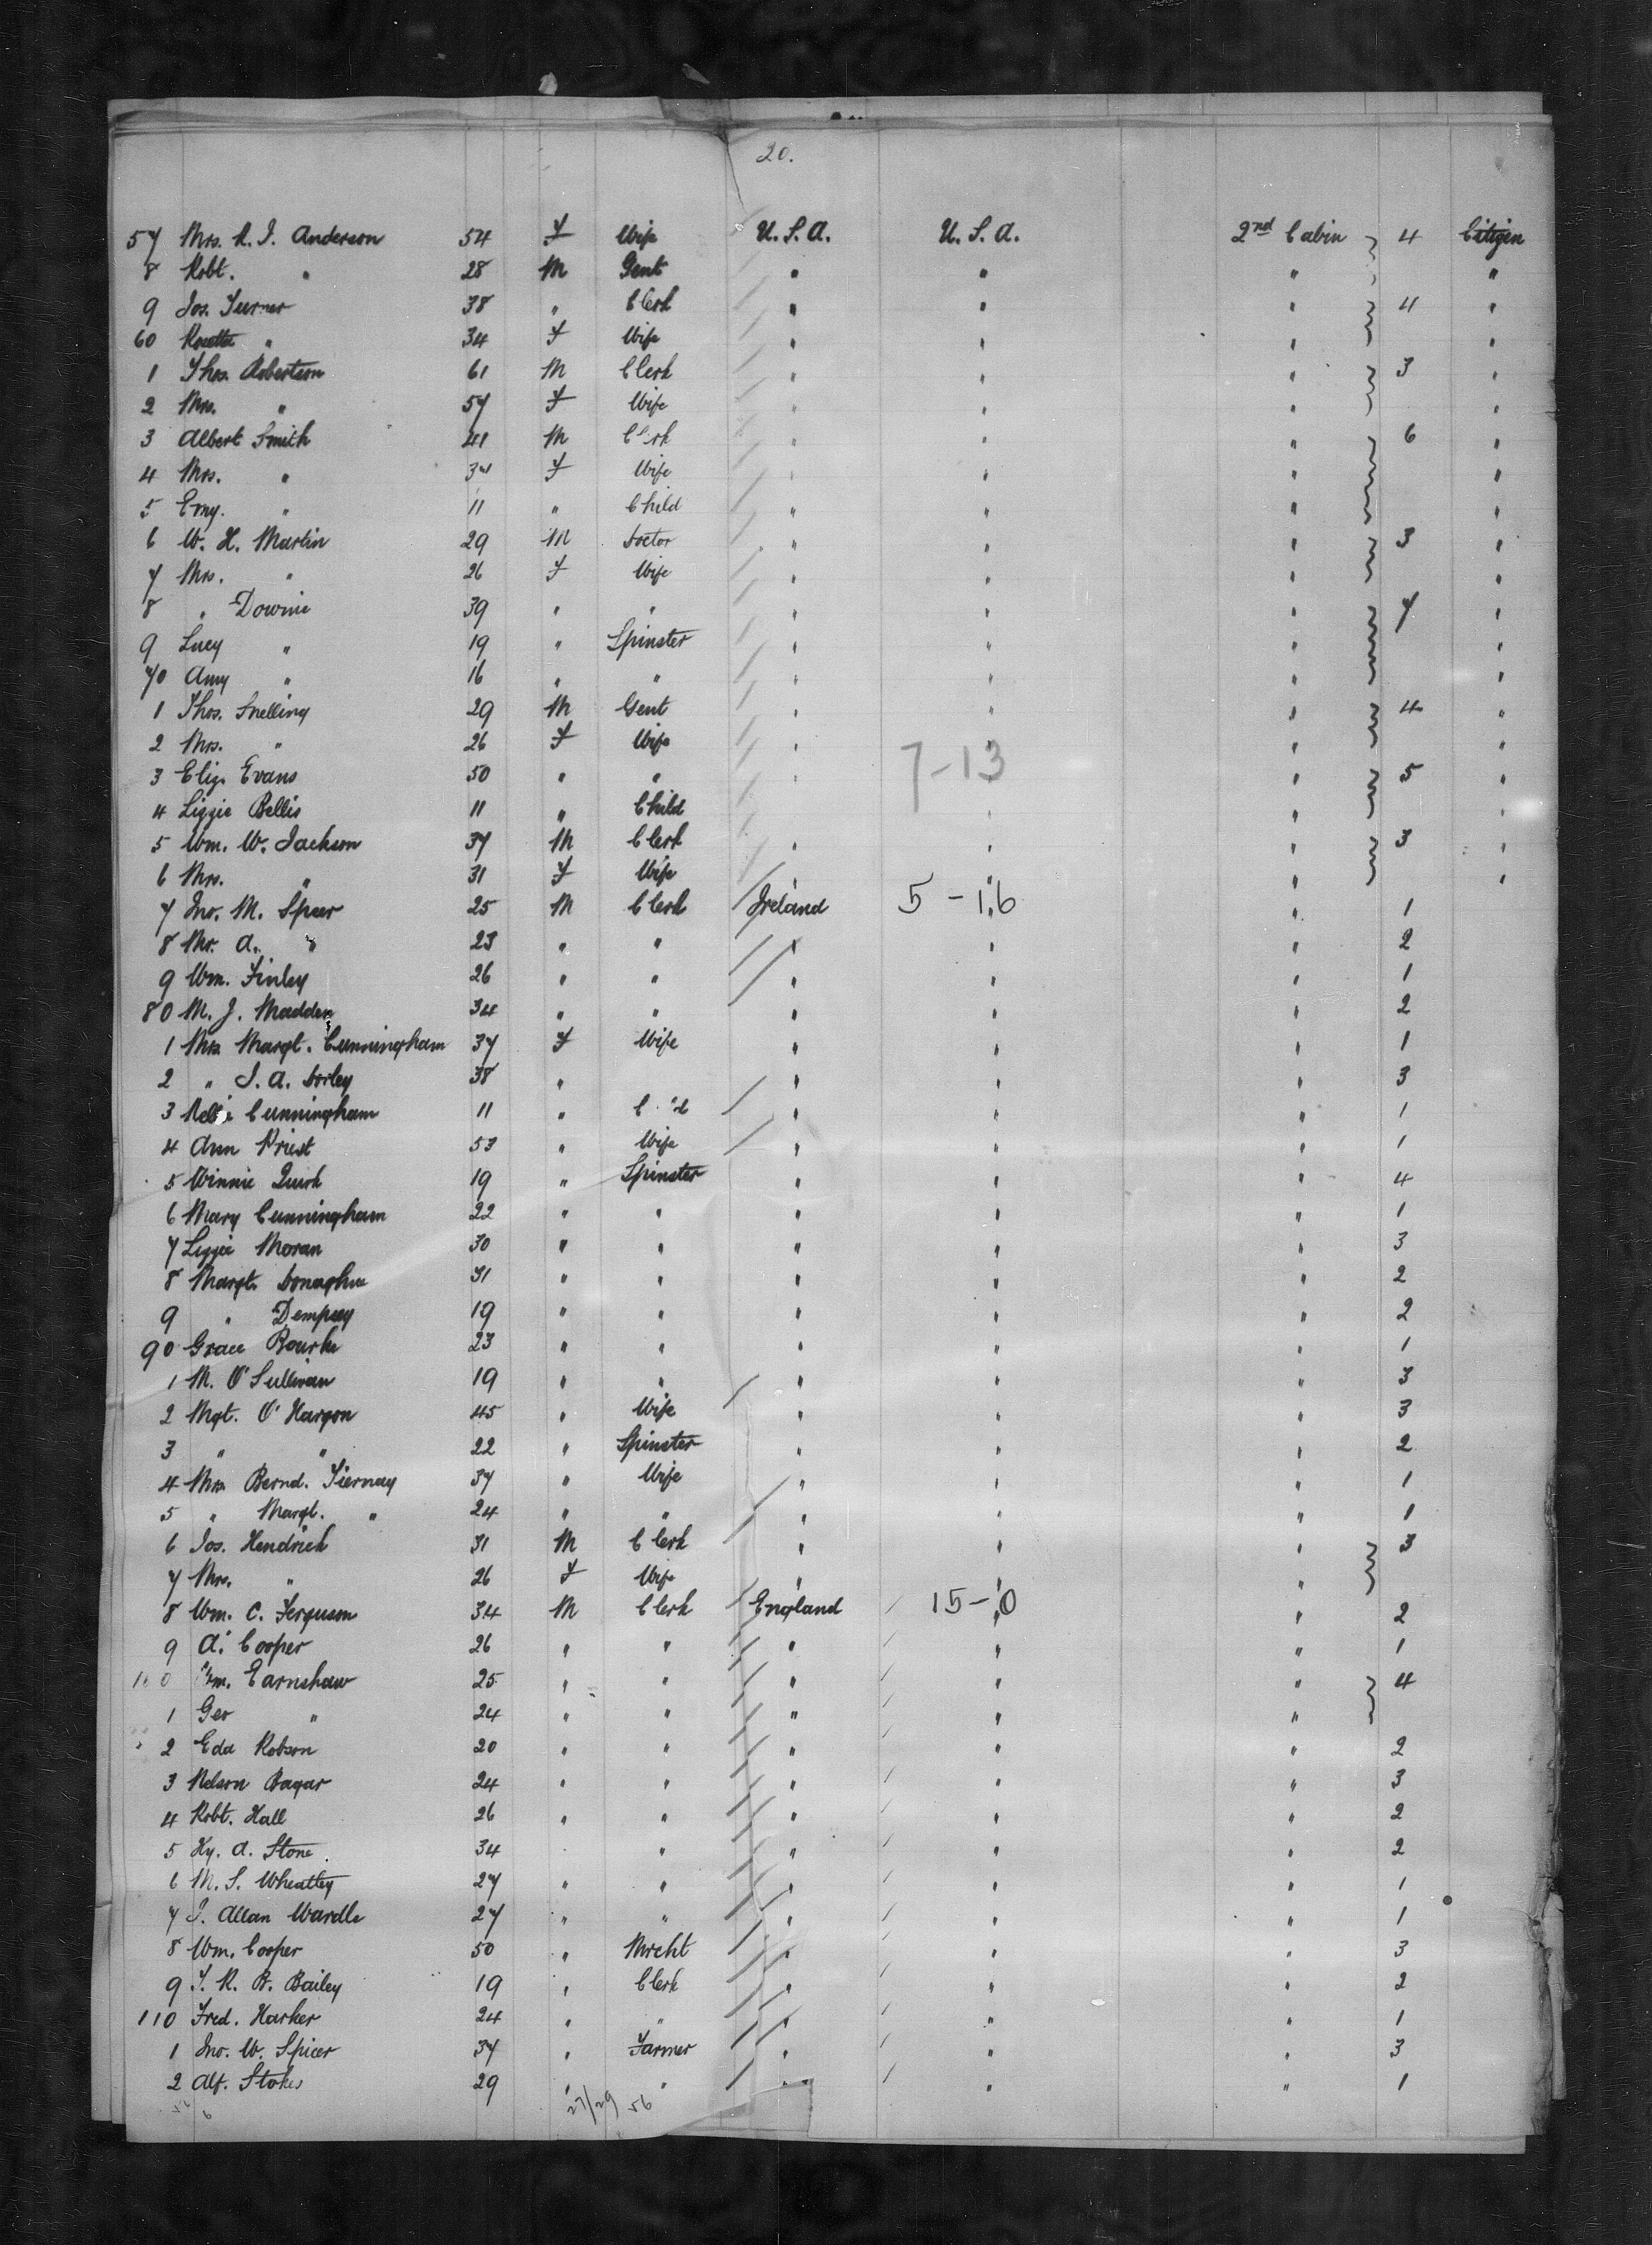 20.
57 Mrs. R. J. Anderson 54 F Wife U.S.A. U.S.A. 2nd Cabin 4 Citizen
8 Robt. " 28 M Gent " " " "
9 Jos. Turner 38 " Clerk " " " 4 "
60 Rosetta " 34 F Wife " " " "
1 Thos. Robertson 61 M Clerk " " " 3 "
2 Mrs. " 57 F Wife " " " "
3 Albert Smith 41 M Clerk " " " 6 "
4 Mrs. " 34 F Wife " " " "
5 Emy. " 11 " Child " " " "
6 W. H. Martin 29 M Doctor " " " 3 "
7 Mrs. " 26 F Wife " " " "
8 " Downie 39 " " " " " 7 "
9 Lucy " 19 " Spinster " " " "
70 Amy " 16 " " " " " "
1 Thos. Snelling 29 M Gent " " " 4 "
2 Mrs. " 26 F Wife " " " "
7-13
3 Eliz. Evans 50 " " " " 5 "
4 Lizzie Bellis 11 " Child " " "
5 Wm. W. Jackson 37 M Clerk " " " 3 "
6 Mrs. " 31 F Wife " " " "
7 Jno. M. Speer 25 M Clerk Ireland 5-16 " " 1
8 Mr. A. " 23 " " " " " 2
9 Wm. Finley 26 " " " " " 1
80 M. J. Madden 34 " " " " " 2
1 Mrs Margt. Cunningham 37 F Wife " " " 1
2 " J. A. Dorley 38 " " " " 3
3 Cunningham 11 " " " " 1
4 Ann Priest 53 " Wife " " " 1
5 Winnie Quirk 19 " Spinster " " " 4
6 Mary Cunningham 22 " " " " " 1
7 Lizzie Moran 30 " " " " " 3
8 Margt. Donaghue 31 " " " " " 2
9 " Dempsey 19 " " " " " 2
90 Grace Bourke 23 " " " " " 1
1 M. O'Sullivan 19 " " " " " 3
2 Mgt. O'Hargon 45 " Wife " " " 3
3 " " 22 " Spinster " " " 2
4 Mrs Bernd. Tiernay 37 " Wife " " " 1
5 " Margt. " 24 " " " " " 1
6 Jos. Hendrick 31 M Clerk " " " 3
7 Mrs. " 26 F Wife " " "
8 Wm. C. Ferguson 34 M Clerk England 15-0 " " 2
9 A. Cooper 26 " " " " " 1
100 Wm. Earnshaw 25 " " " " " 4
1 Geo " 24 " " " " "
2 Edd Robson 20 " " " " " 2
3 Nelson Bagar 24 " " " " " 3
4 Robt. Hall 26 " " " " " 2
5 Hy. A. Stone 34 " " " " 2
6 M. S. Wheatley 27 " " " " " 1
7 J. Allan Wardle 27 " " " " " 1
8 Wm. Cooper 50 " Mrcht " " " 3
9 T. R. B. Bailey 19 " Clerk " " " 2
110 Fred. Harker 24 " " " " " 1
1 Jno. W. Spicer 37 " Farmer " " " 3
2 Alf. Stokes 29 " " " " " 1
27/29 56